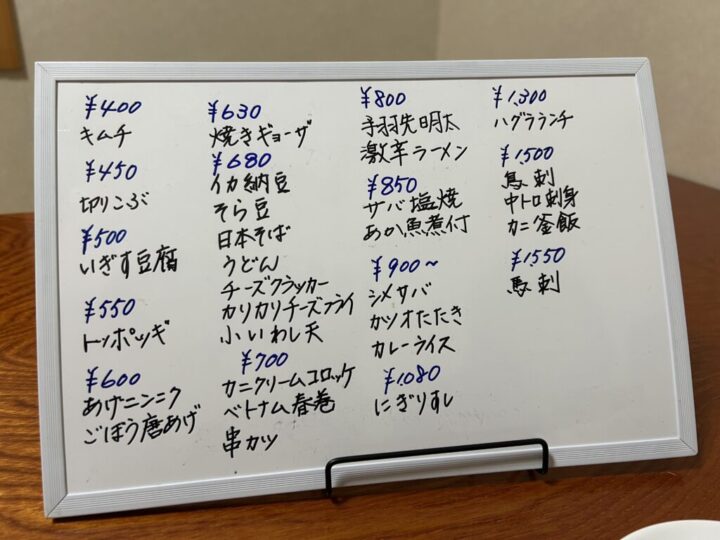 ¥400
キムチ
¥450
切りこぶ
¥500
いぎす豆腐
¥550
トッポッギ
¥600
あげニンニク
ごぼう唐あげ
¥630
焼きギョーザ
¥680
イカ納豆
そら豆
日本そば
うどん
チーズクラッカー
カリカリチーズフライ
小いわし天
¥700
カニクリームコロッケ
ベトナム春巻
串カツ
¥800
手羽先明太
激辛ラーメン
¥850
サバ塩焼
あか魚煮付
¥900〜
シメサバ
カツオたたき
カレーライス
¥1,080
にぎりすし
¥1,300
ハグラランチ
¥1,500
馬刺
中トロ刺身
カニ釜飯
¥1,550
馬刺